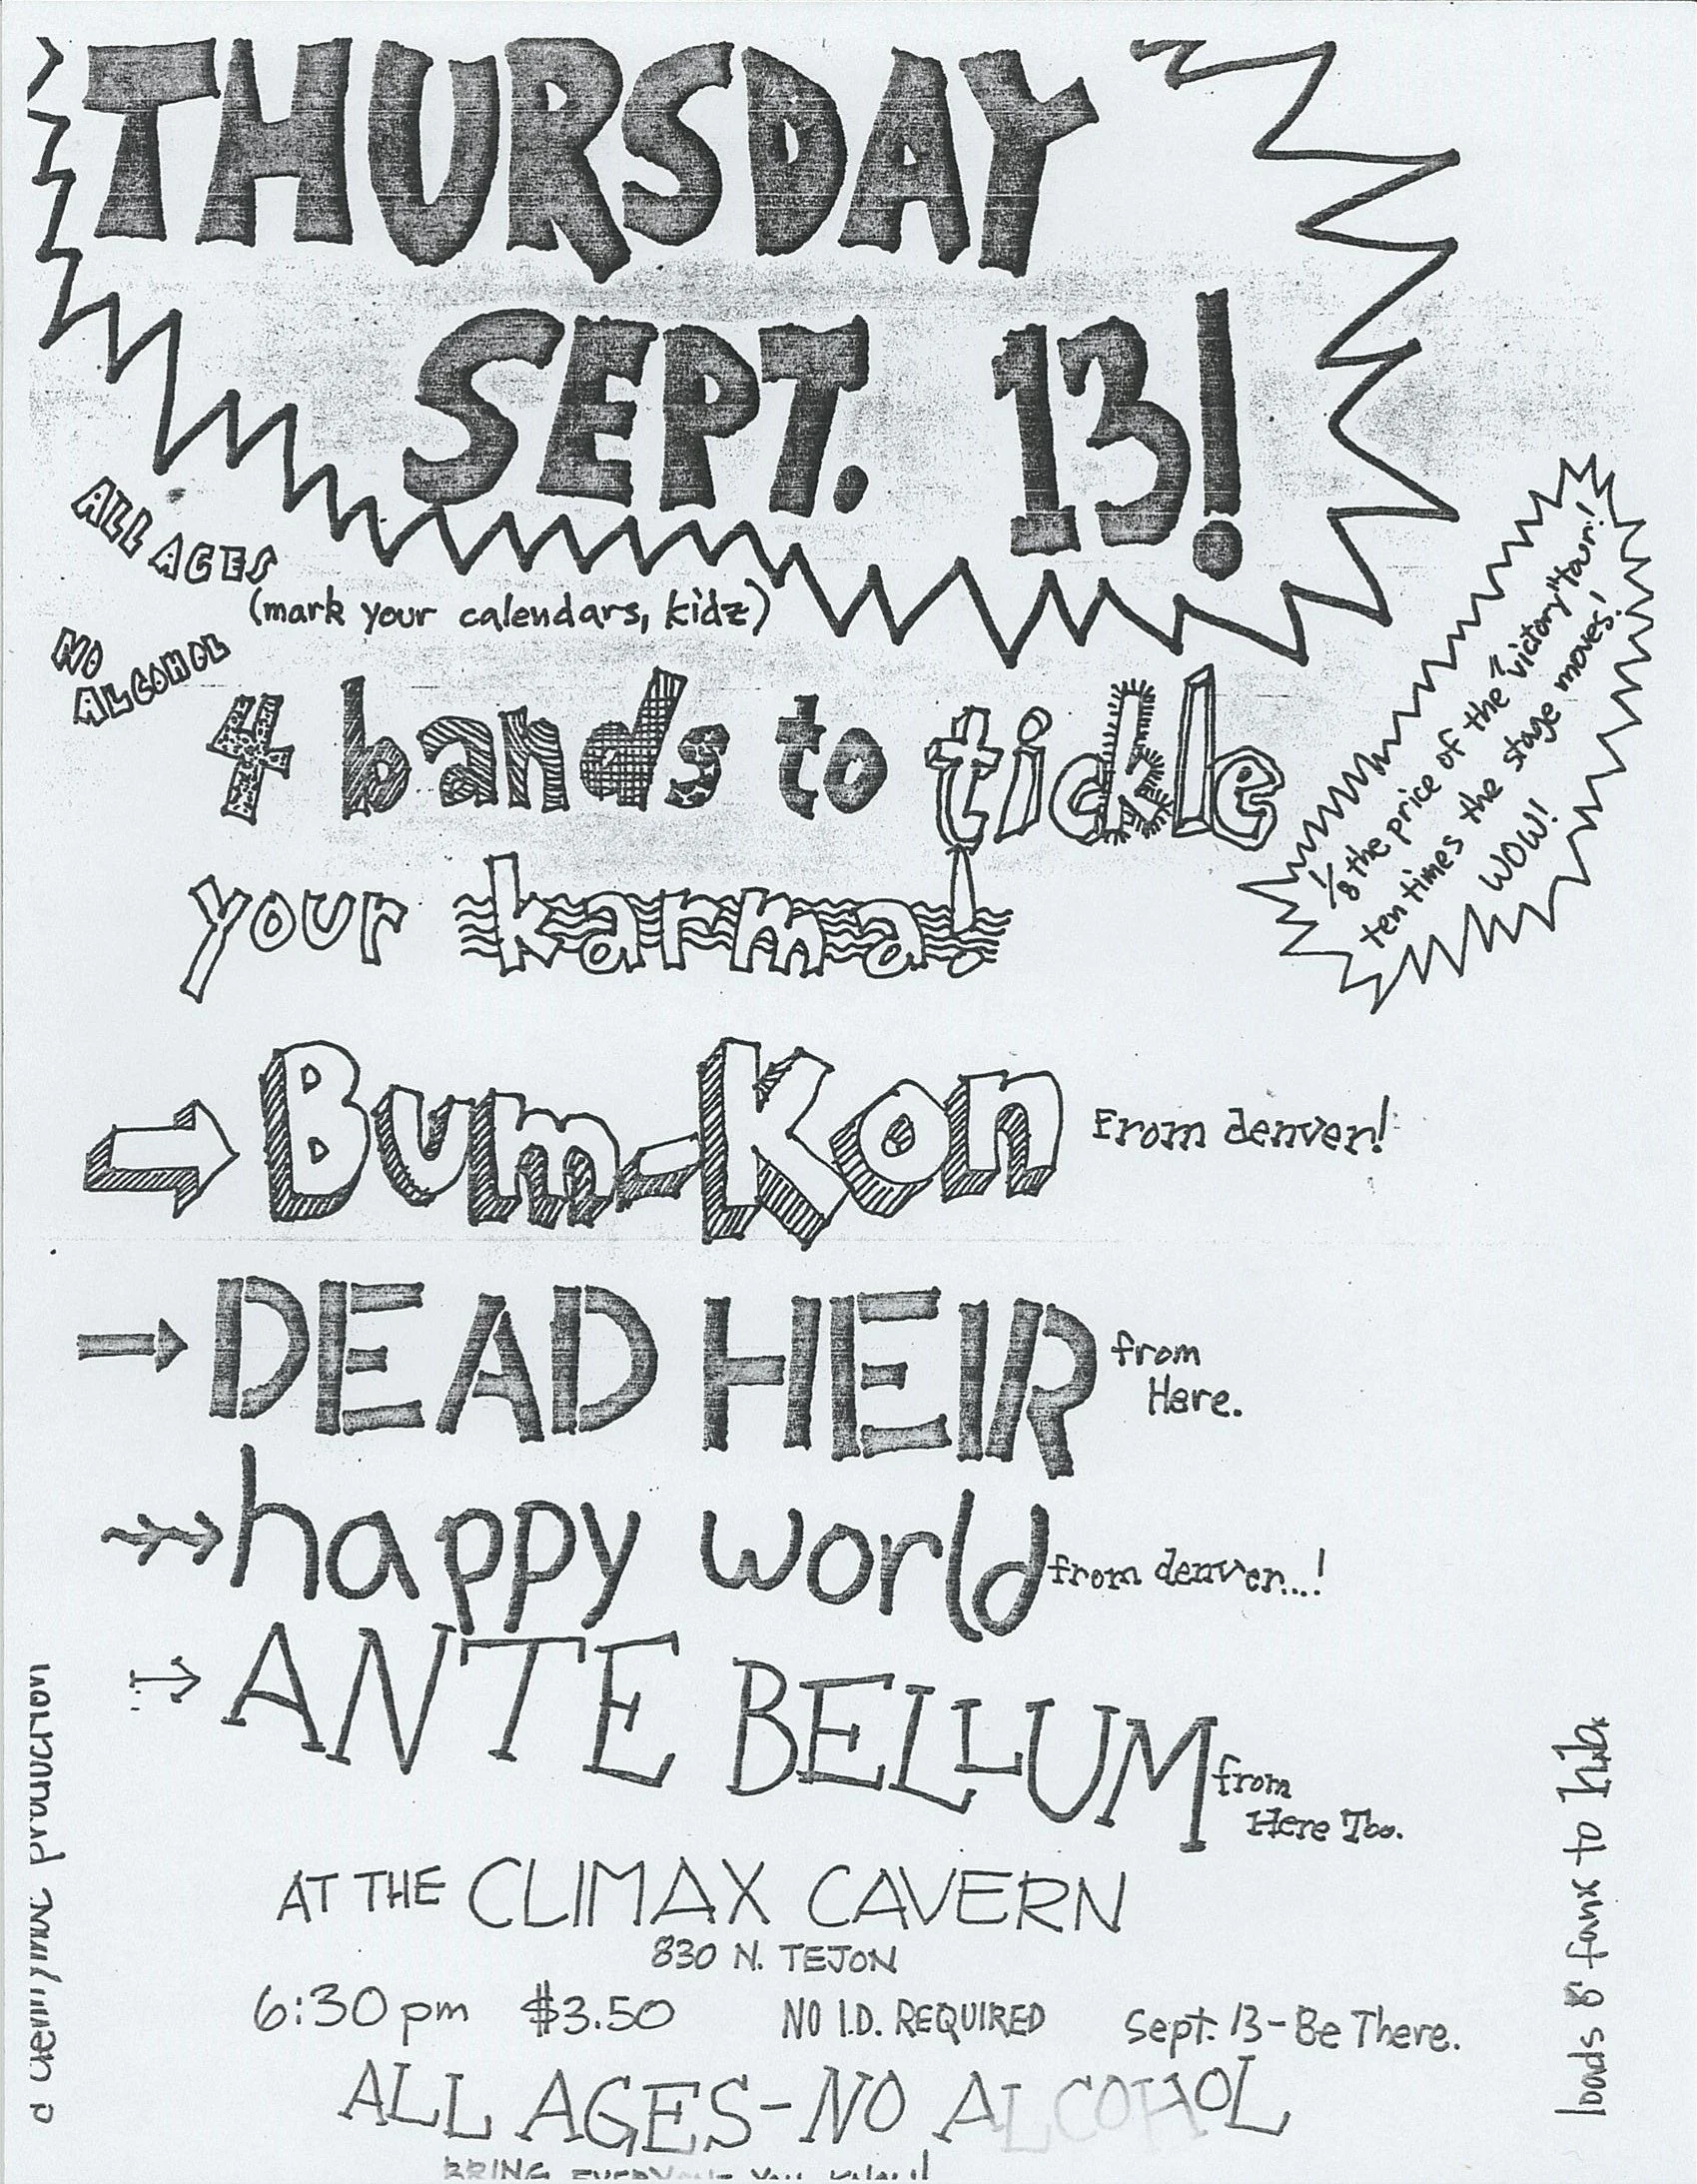 THURSDAY
SEPT. 13!
ALL AGES
(mark your calendars, kidz)
NO
ALCOHOL
4 bands to tickle
your karma!
1/8 the price of the "victory" tour!
ten times the stage moves!
WOW!
Bum-Kon From denver!
DEAD HEIR from
Here.
happy world from denver...!
ANTE BELLUM from
Here Too.
AT THE CLIMAX CAVERN
830 N. TEJON
6:30 pm $3.50 NO I.D. REQUIRED Sept. 13 - Be There.
ALL AGES - NO ALCOHOL
BRING EVERYONE YOU KNOW!
production
loads 8 fanx to